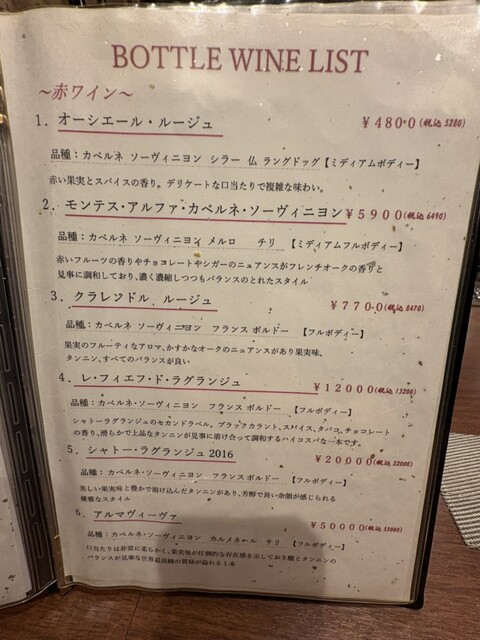 BOTTLE WINE LIST
～赤ワイン～
1. オーシエール・ルージュ ￥4800(税込 5280)
品種：カベルネ ソーヴィニヨン シラー 仏 ラングドッグ【ミディアムボディー】
赤い果実とスパイスの香り。デリケートな口当たりで複雑な味わい。
2. モンテス・アルファ・カベルネ・ソーヴィニヨン ￥5900(税込 6490)
品種：カベルネ ソーヴィニヨン メルロ チリ 【ミディアムフルボディー】
赤いフルーツの香りやチョコレートやシガーのニュアンスがフレンチオークの香りと
見事に調和しており、濃く濃縮しつつもバランスのとれたスタイル
3. クラレンドル ルージュ ￥7700(税込 8470)
品種：カベルネ ソーヴィニヨン フランス ボルドー 【フルボディー】
果実のフルーティなアロマ、かすかなオークのニュアンスがあり果実味、
タンニン、すべてのバランスが良い
4. レ・フィエフ・ド・ラグランジュ ￥12000(税込 13200)
品種：カベルネ・ソーヴィニヨン フランス ボルドー 【フルボディー】
シャトーラグランジュのセカンドラベル。ブラックカラント、スパイス、タバコ、チョコレート
の香り、滑らかで上品なタンニンが見事に溶け合って調和するハイコスパな一本です。
5. シャトー・ラグランジュ 2016 ￥20000(税込 22000)
品種：カベルネ・ソーヴィニヨン フランス ボルドー 【フルボディー】
美しい果実味と豊かで溶け込んだタンニンがあり、芳醇で良い余韻が感じられる
優雅なスタイル
6. アルマヴィーヴァ ￥50000(税込 55000)
品種：カベルネ・ソーヴィニヨン カルメネール チリ 【フルボディー】
口当たりは非常に柔らかく、果実味が圧倒的な存在感を示しており酸とタンニンの
バランスが見事な世界最高峰の質味が溢れる１本